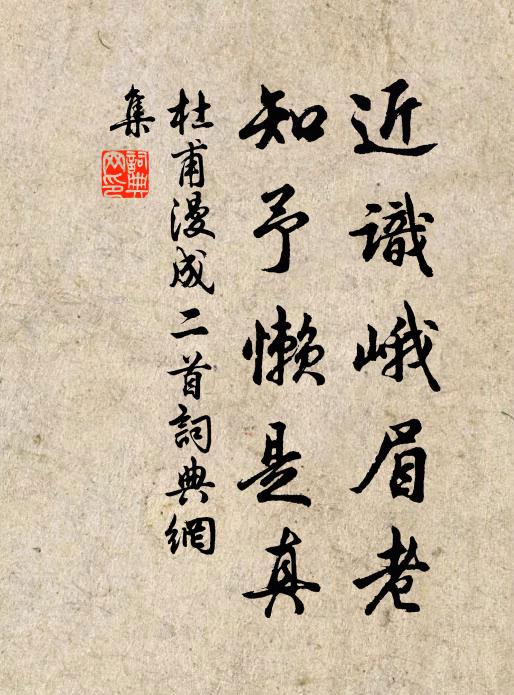 近識峨眉老
知予懶是真
杜甫漫成二首詞典網
集
詞典
网印